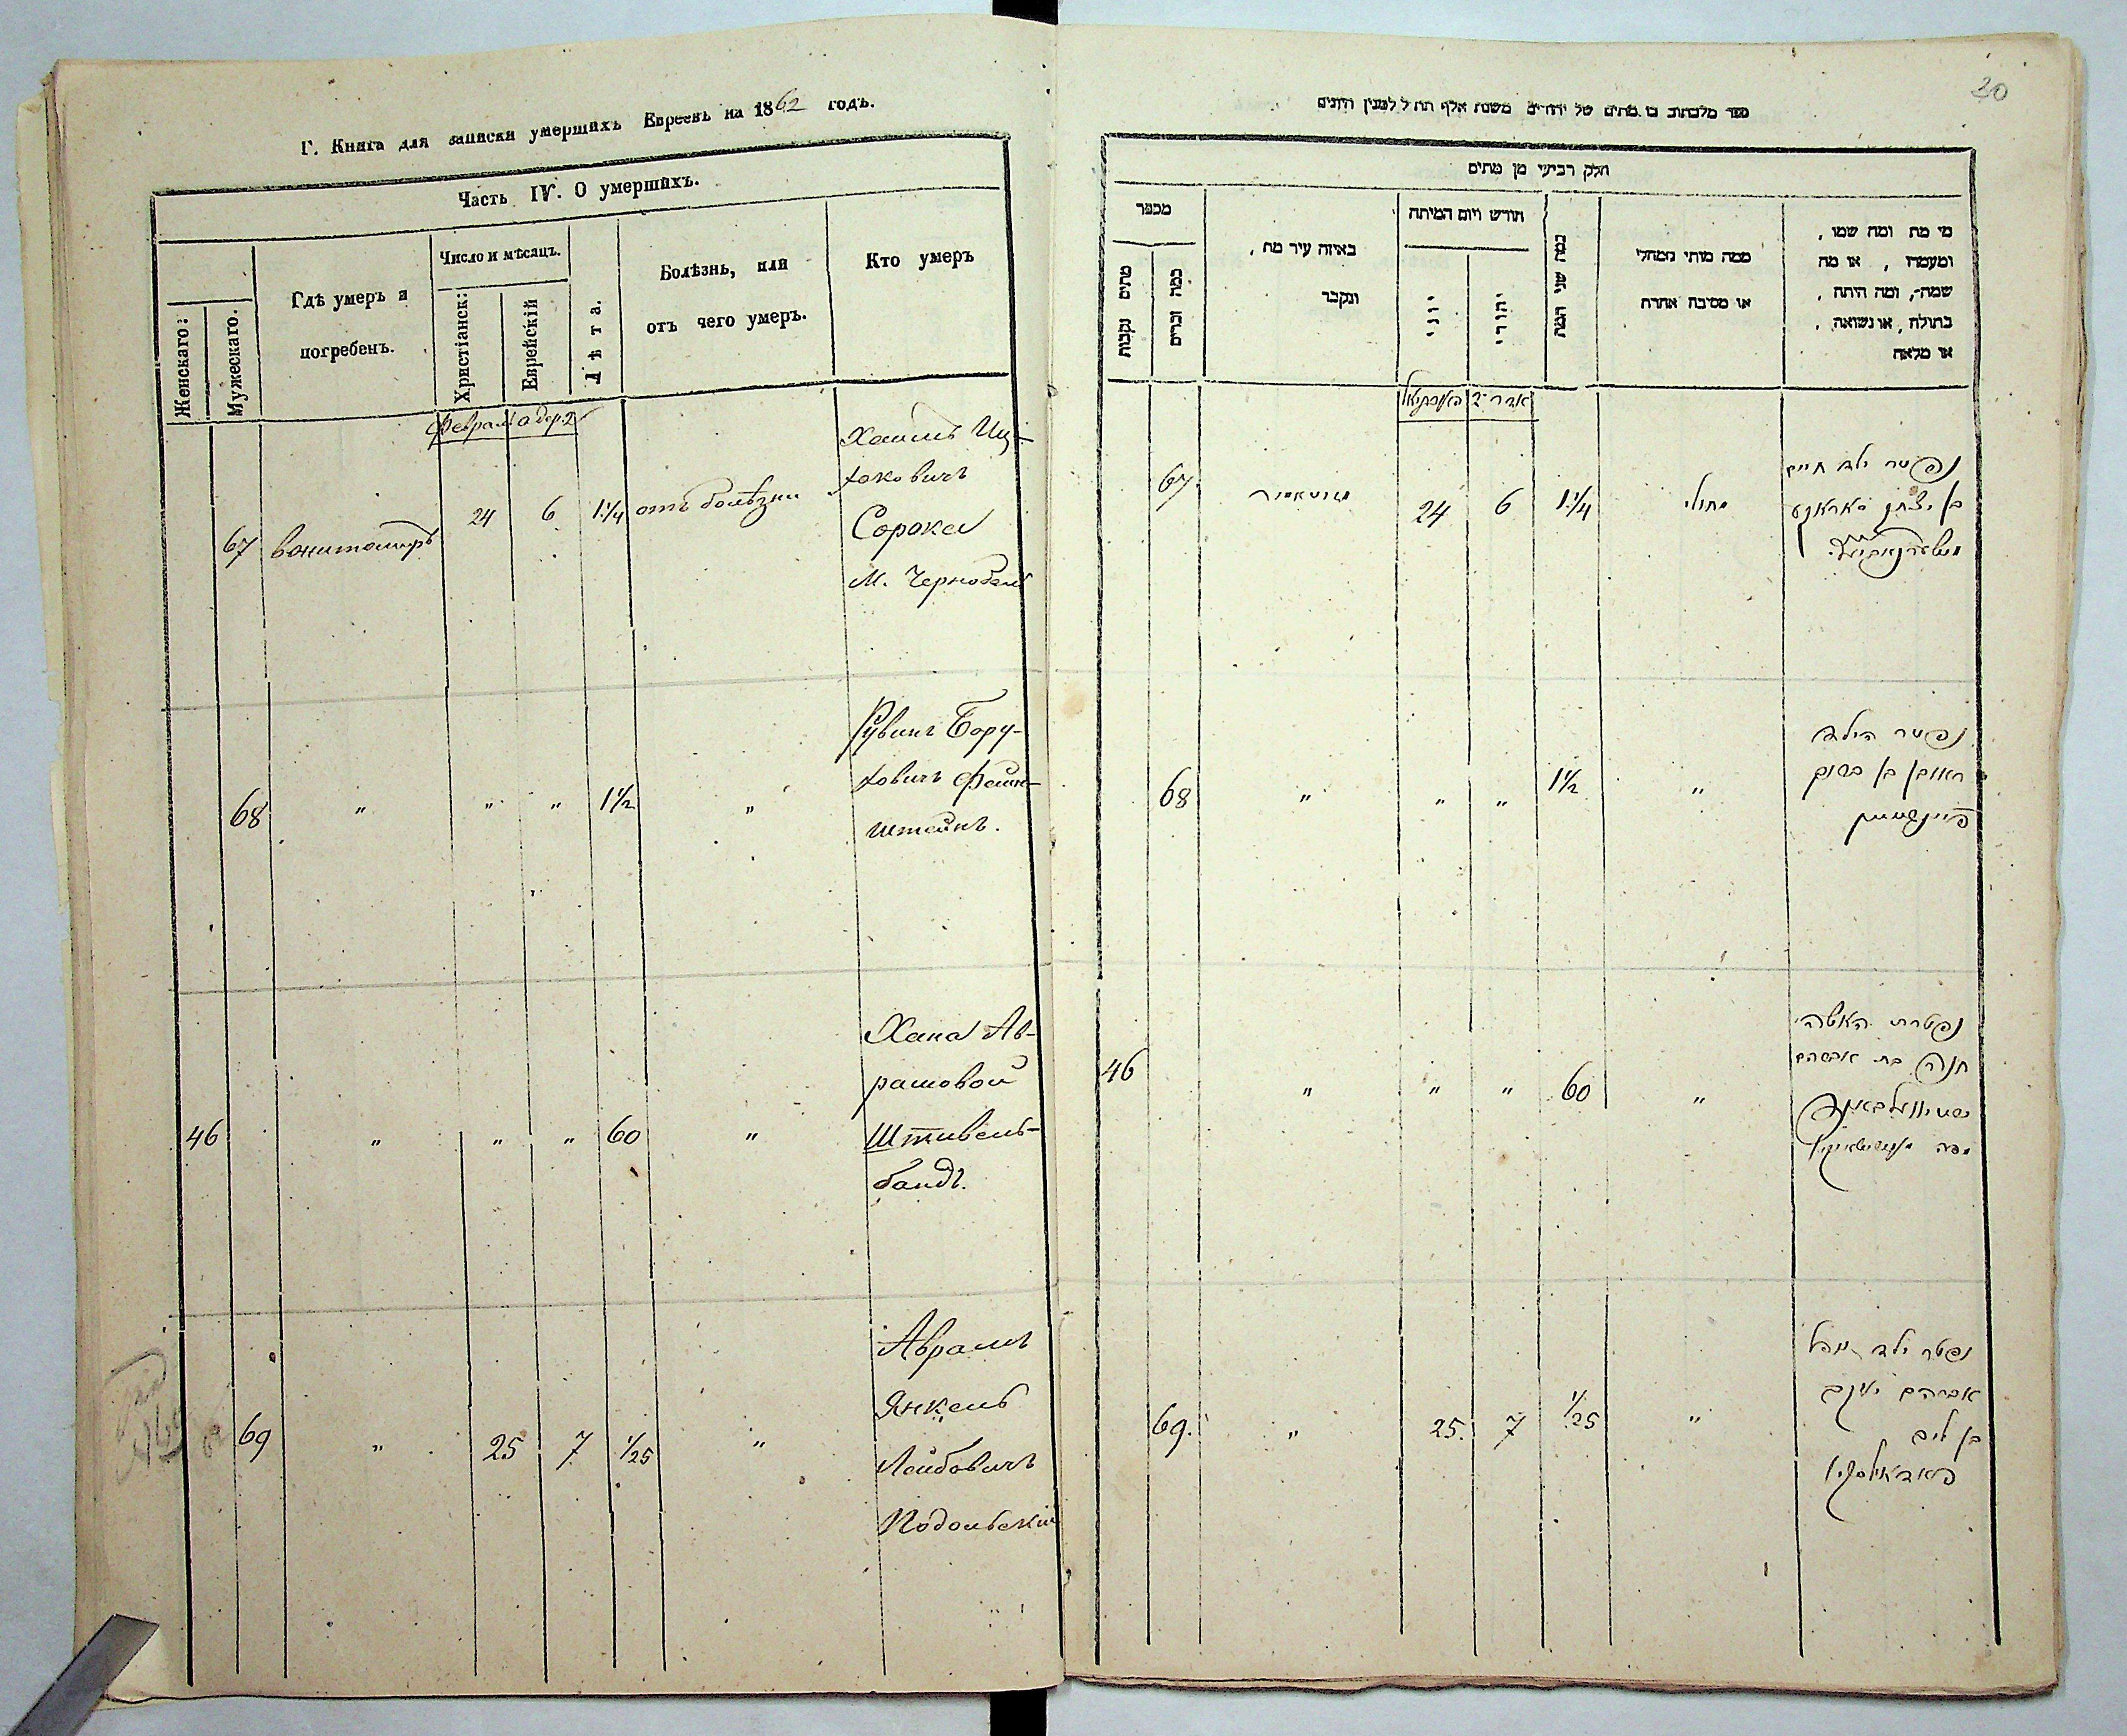 Г. Книга для записки умершихъ Евреевъ на 1862 годъ.
Часть IV. О умершихъ.
Женскаго:
Мужескаго.
Гдѣ умеръ и
погребенъ.
Число и мѣсяцъ.
Христіанск:
Еврейскій
Лѣта.
Болѣзнь, или
отъ чего умеръ.
Кто умеръ
Феврал. адер. 2
67 Вжитомирѣ 24 6 1 1/4 отъ болѣзни
Хаимъ Иц-
хоковичъ
Сорока
М. Чернобель
68 " " " 1 1/2 "
Рувинъ Бору-
ховичъ Фейн-
штейнъ.
46 " " " 60 "
Хана Ав-
рамовой
Штивель-
бандъ.
69 " 25 7 1/25 "
Аврамъ
Янкель
Лейбовичъ
Подольскій
20
ספר מתים של יהודים משנת אלף תת ל למנין היונים
חלק רביעי מן מתים
מספר
מתים נקבות
כמה זכרים
באיזה עיר מת,
ונקבר
חודש ויום המיתה
יוני
יהודי
כמה שני המת
ממה מותי ממחלי
או מסיבה אחרת
מי מת ומה שמו,
ומעמדו, או מה
שמה, ומה היתה,
בתולה, או נשואה,
או מלאה
אדר ב
67 24 6 1 1/4 מחולי
נפטר ילד חיים
בן יצחק סאראקע
68 " " " 1 1/2 "
נפטר הילד
ראובן בן ברוך
פיינשטיין
46 " " " 60 "
נפטרת האשה
חנה בת אברהם
שטיוועלבאנד
69. " 25. 7 1/25 "
נפטר ילד
אברהם יעקב
בן ליב
פאדאלסקי